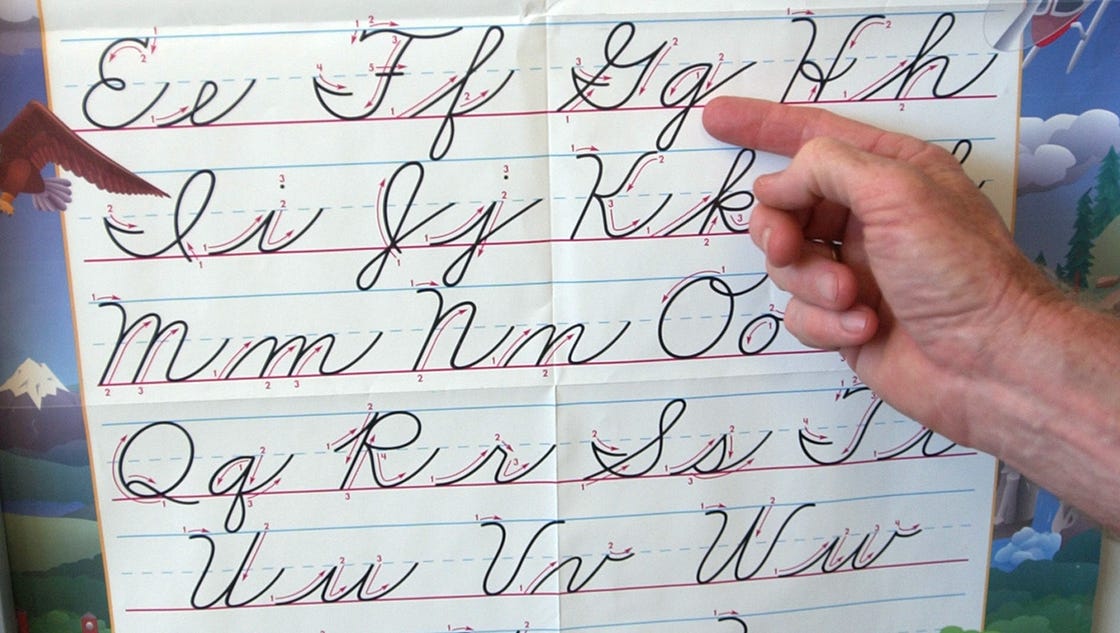 E e F f G g H h
I i J j K k
M m N n O o
Q q R r S s T t
U u V v W w